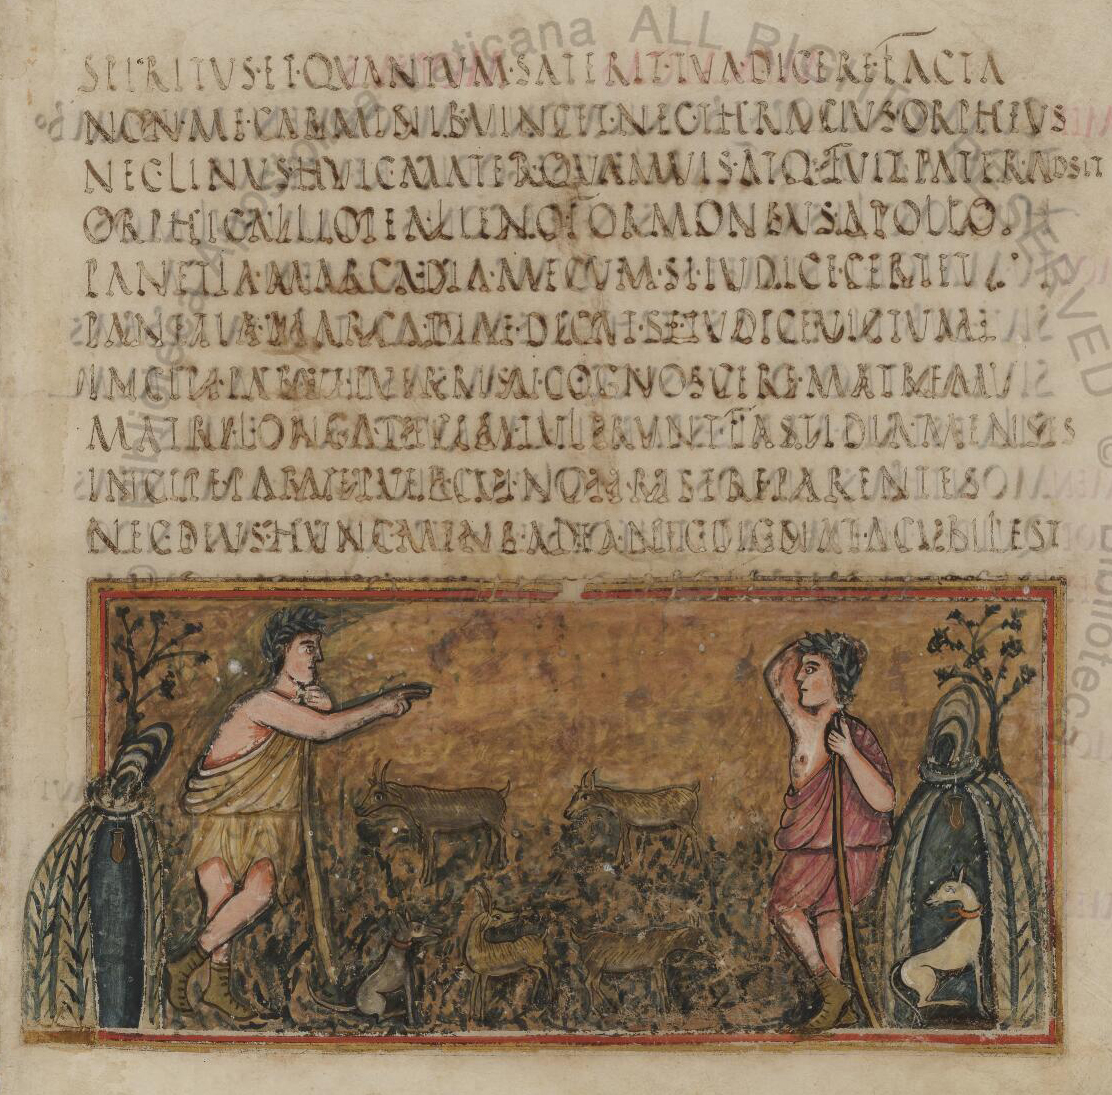 SPIRITUS·ET·QUANTUM·SATERIT·TUA·DICERE·FACTA
NON·ME·CARMINIB·VINCET·NEC·THRACIUS·ORPHEUS
NEC·LINUS·HUIC·MATER·QUAMVIS·ATQ·HUIC·PATER·ADSIT
ORPHI·CALLOPEA·LINO·FORMONSUS·APOLLO·
PANETIAM·ARCADIA·MECUM·SI·IUDICE·CERTET
PANETIAM·ARCADIA·DICAT·SE·IUDICE·VICTUM
INCIPE·PARVE·PUER·RISU·COGNOSCERE·MATREM
MATRI·LONGA·DECEM·TULERUNT·FASTIDIA·MENSES
INCIPE·PARVE·PUER·CUI·NON·RISERE·PARENTES
NEC·DEUS·HUNC·MENSA·DEA·NEC·DIGNATA·CUBILEST
© Biblioteca Apostolica Vaticana ALL RIGHTS RESERVED © Biblioteca